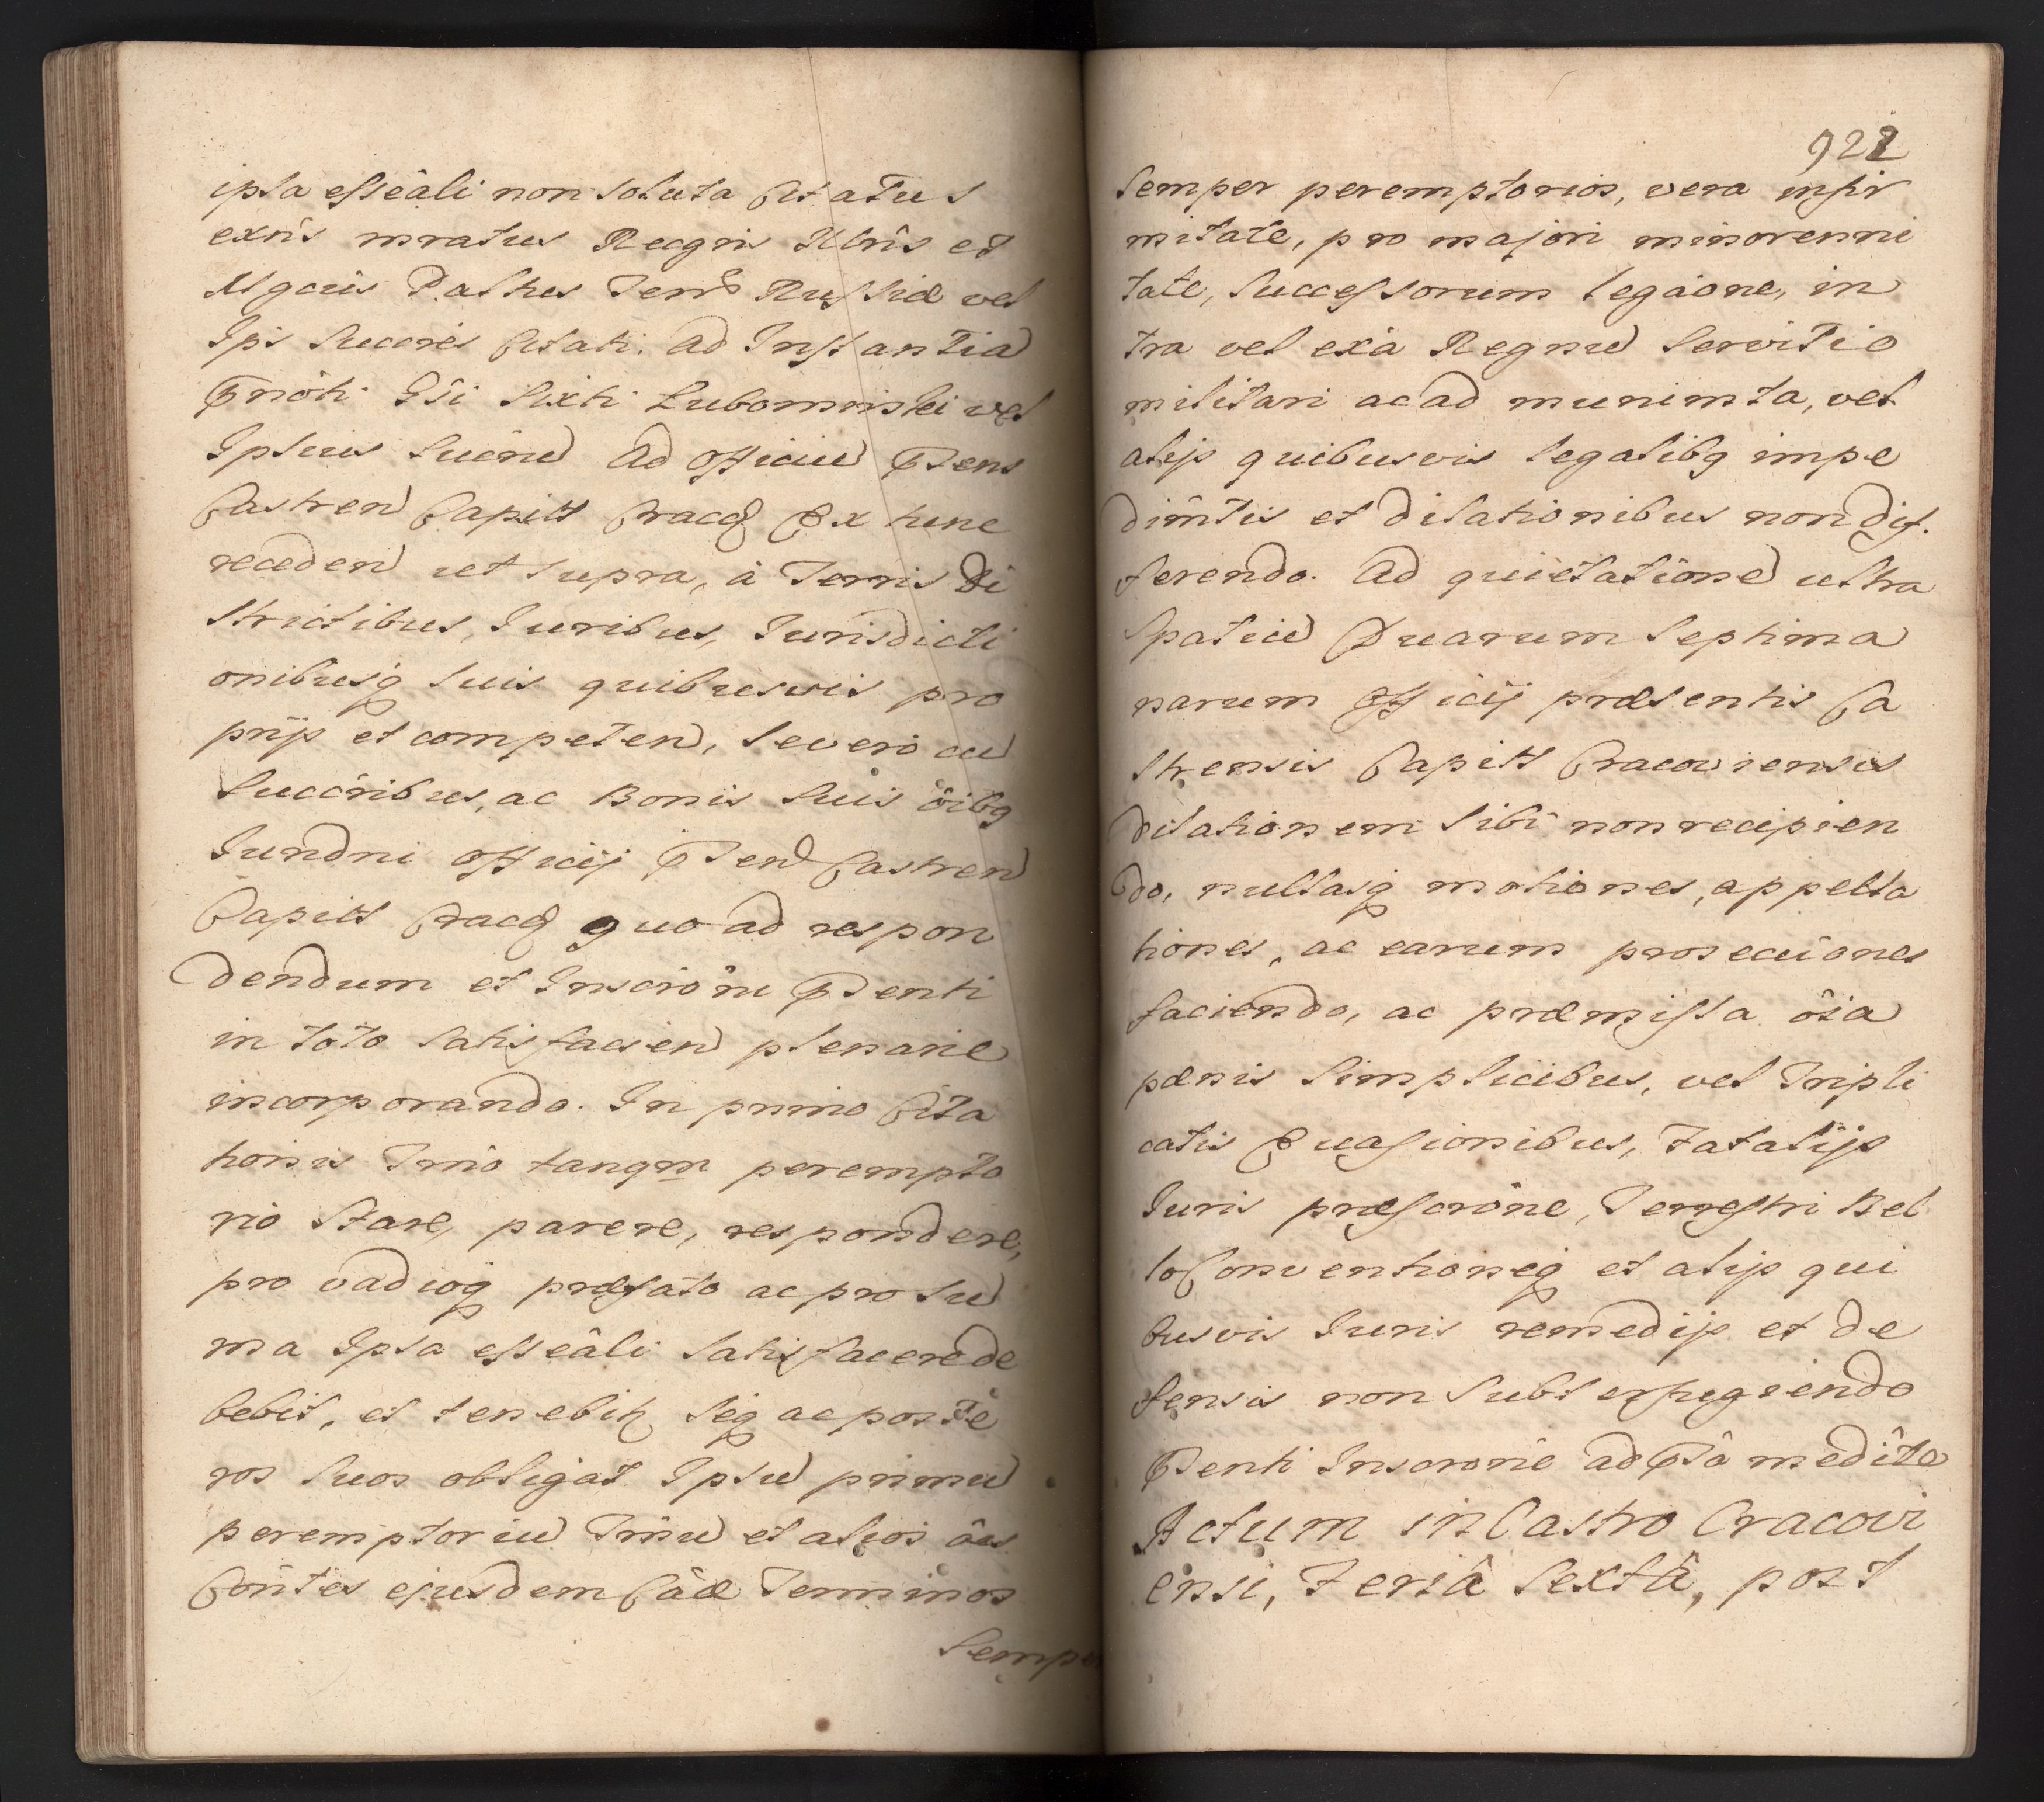 ipsa essẽali non soluta Citatus
exñs mratus Recgñs Ultris et
Mgcus Palthes Terrę Russiæ vel
Ipĩ Succres Citati. Ad Instantiã
Gnõti Dñi Sixti Lubomirski vel
Ipsius Sucõrũ Ad Officiũ Pñens
Castren Capitt Cracq Ex tunc
receden ut supra, à Terris Di
strictibus, Iuribus, Iurisdicti
onibusq suis quibusvis pro
prijs et competen, Se vero cũ
Succõribus, ac Bonis Suis õibq
Iurdni Officij Pñen Castren
Capitt Cracq quo ad respon
dendum et Inscrõni Pñenti
in toto satisfacien plenarie
incorporando. In primo Cita
tionis Trño tanqm perempto
rio Stare, parere, respondere,
pro vadioq præfato ac pro Sũ
ma Ipsa essẽali satisfacere de
bebit, et tenebitr Seq ac poste
ros suos obligat Ipsũ primũ
peremptoriũ Trñũ et alios õẽs
Cõntes ejusdem Cãæ Terminos
Semper
922
Semper peremptorios, vera infir
mitate, pro majori minorenni
tate, Successorum legãone, in
tra vel exã Regnũ Servitio
militari ac ad munimta, vel
alijs quibusvis legalibq impe
dimtis et dilationibus non dif.
ferendo. Ad quietationẽ ultra
Spatiũ Duarum Septima
narum Officij præsentis Ca
strensis Capitt Cracoviensis
Dilationem Sibi non recipien
do, nullasq motiones, appella
tiones, ac earum prosecuõnes
faciendo, ac præmissa õia
pænis Simplicibus, vel Tripli
catis Evasionibus, Fatalijs
Iuris præscrõne, Terrestri Bel
lo Conventioneq et alijs qui
busvis Iuris remedijs et de
fensis non Subterfugiendo
Pñenti Inscrõne ad Pã medñte
Actum in Castro Cracovi
ensi, Feriâ Sextâ, post